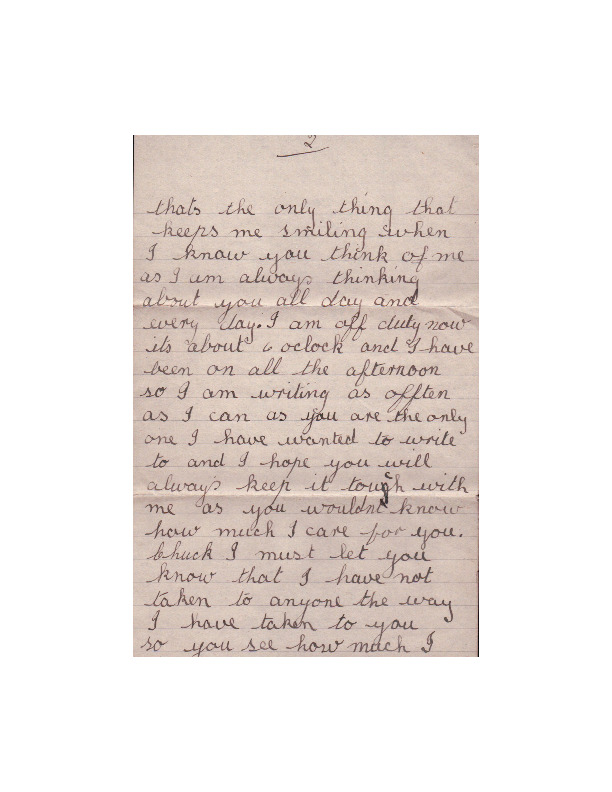 2
thats the only thing that
keeps me smiling when
I know you think of me
as I am always thinking
about you all day and
every day. I am off duty now
its about 6 oclock and I have
been on all the afternoon
so I am writing as offten
as I can as you are the only
one I have wanted to write
to and I hope you will
always keep it touch with
me as you wouldnt know
how much I care for you.
Chuck I must let you
know that I have not
taken to anyone the way
I have taken to you
so you see how much I